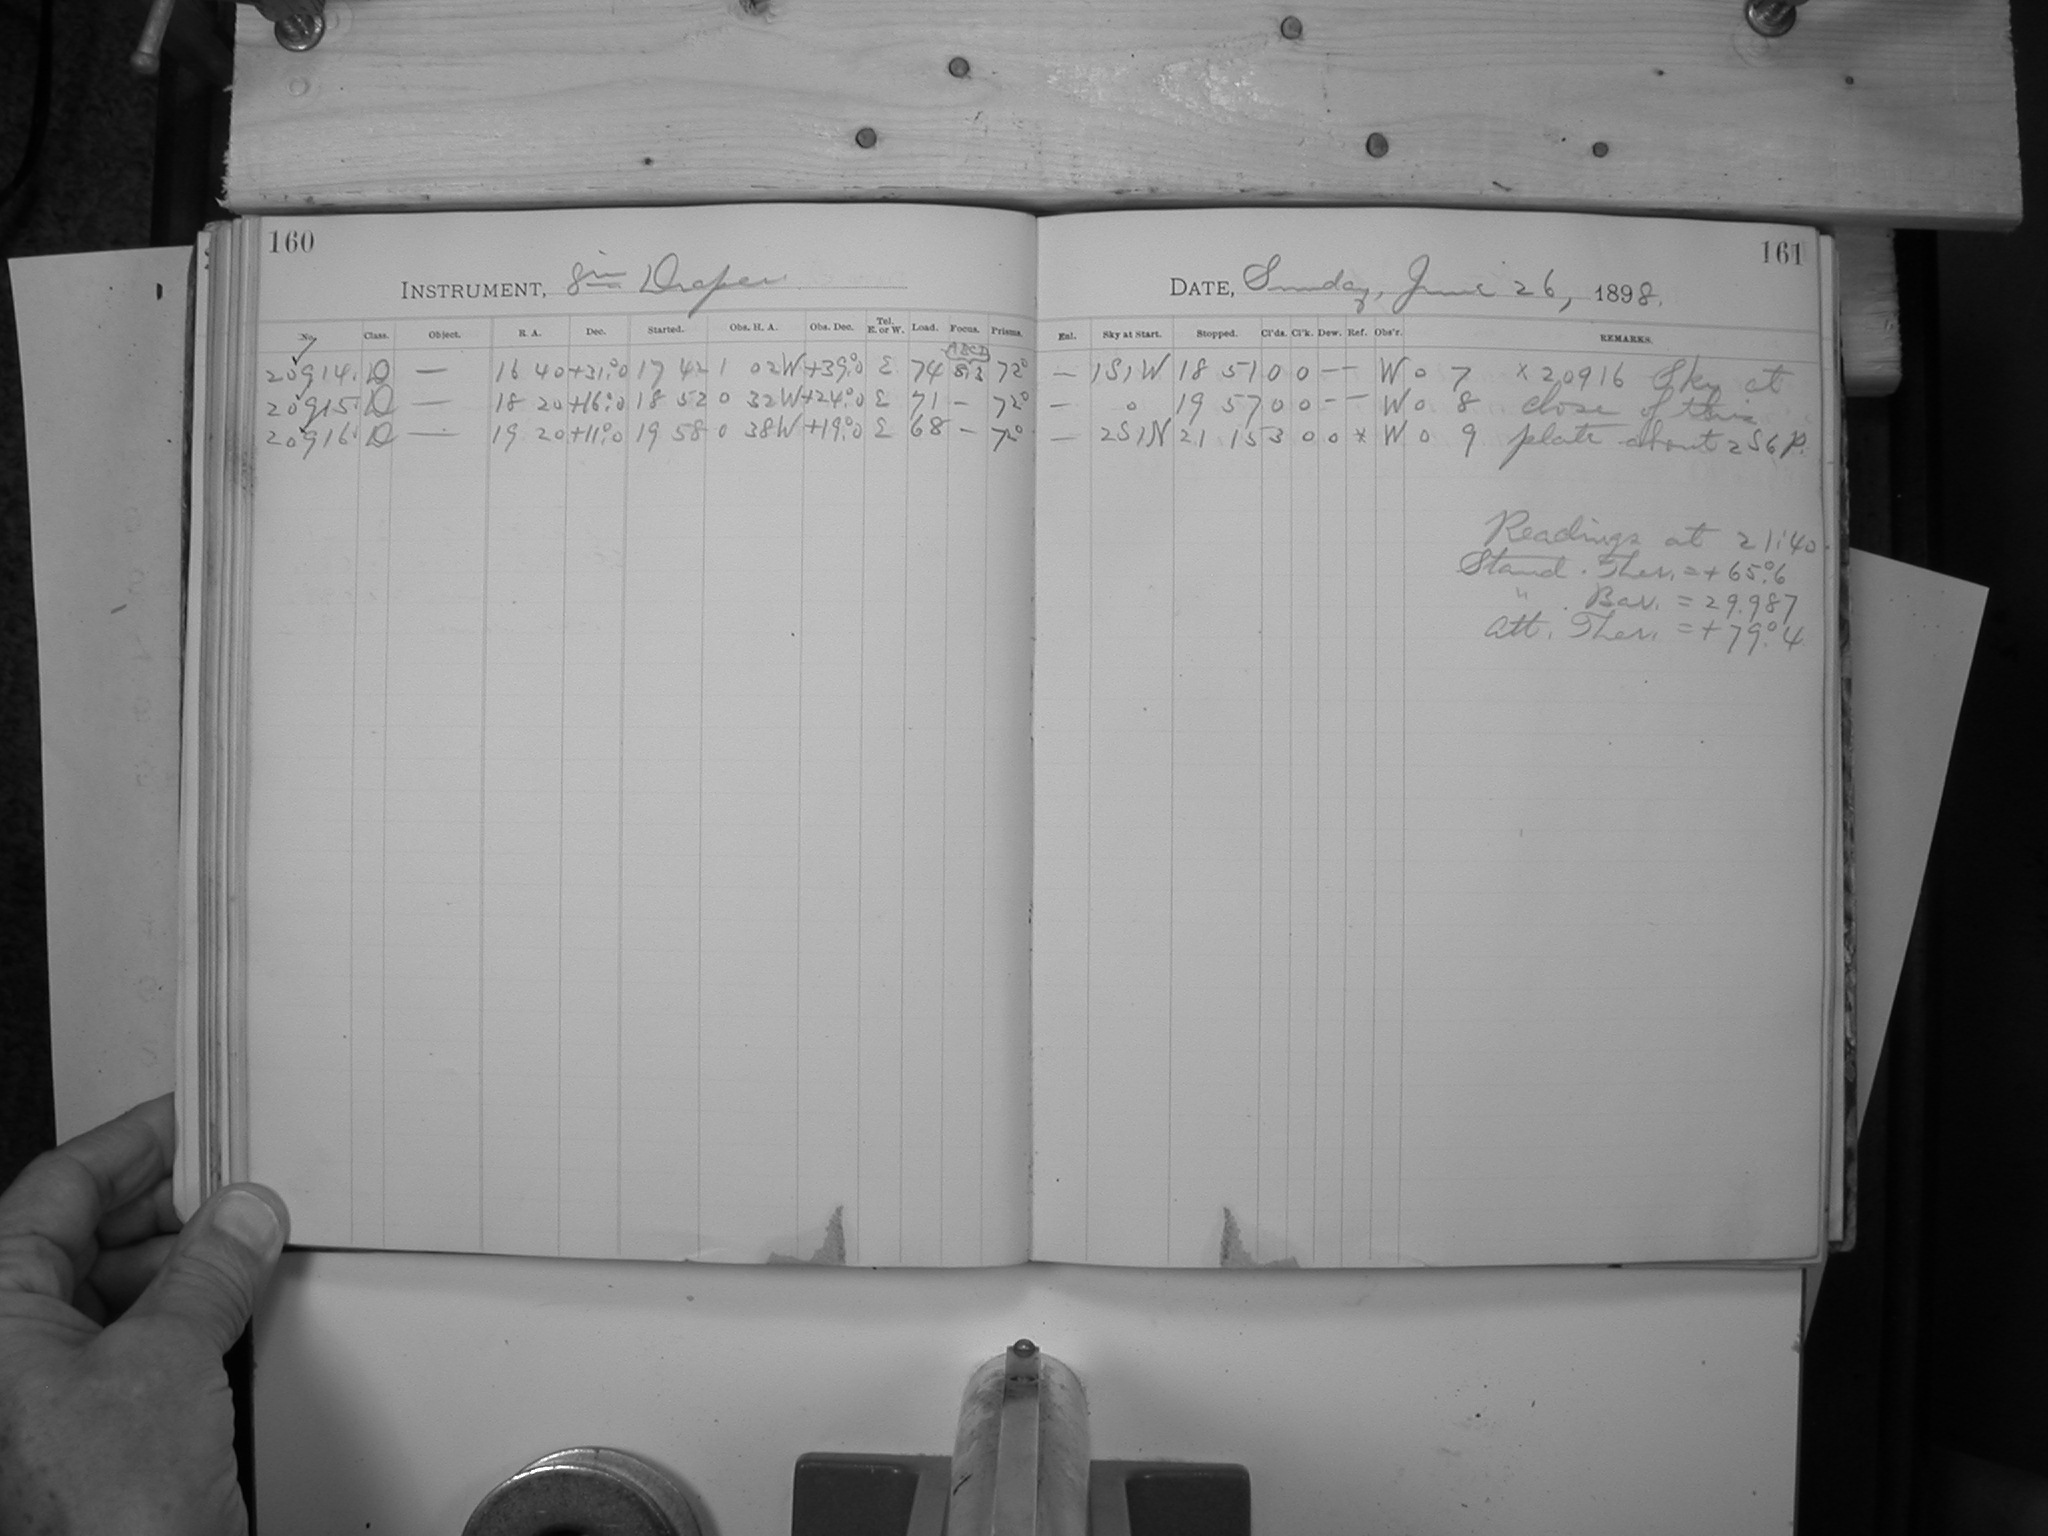 160
INSTRUMENT, 8 in Draper
No. Class. Object. R. A. Dec. Started. Obs. H. A. Obs. Dec. Tel. E. or W. Load. Focus. Prisms.
ABCD
20914. D — 16 40 +31°.0 17 42 1 02W +39°.0 E 74 8.3 72°
20915. D — 18 20 +16°.0 18 52 0 32W +24°.0 E 71 – 72°
20916. D — 19 20 +11°.0 19 58 0 38W +19°.0 E 68 – 72°
161
DATE, Sunday, June 26, 1898.
Enl. Sky at Start. Stopped. Cl'ds. Cl'k. Dew. Ref. Obs'r. REMARKS.
— 1S1W 18 51 0 0 – – W 0 7 × 20916 Sky at
— 0 19 57 0 0 – – W 0 8 close of this
— 2S1N 21 15 3 0 0 × W 0 9 plate about 2S6P.
Readings at 21:40.
Stand. Ther. = +65°.6
" . Bar. = 29.987
Att. Ther. = +79°.4